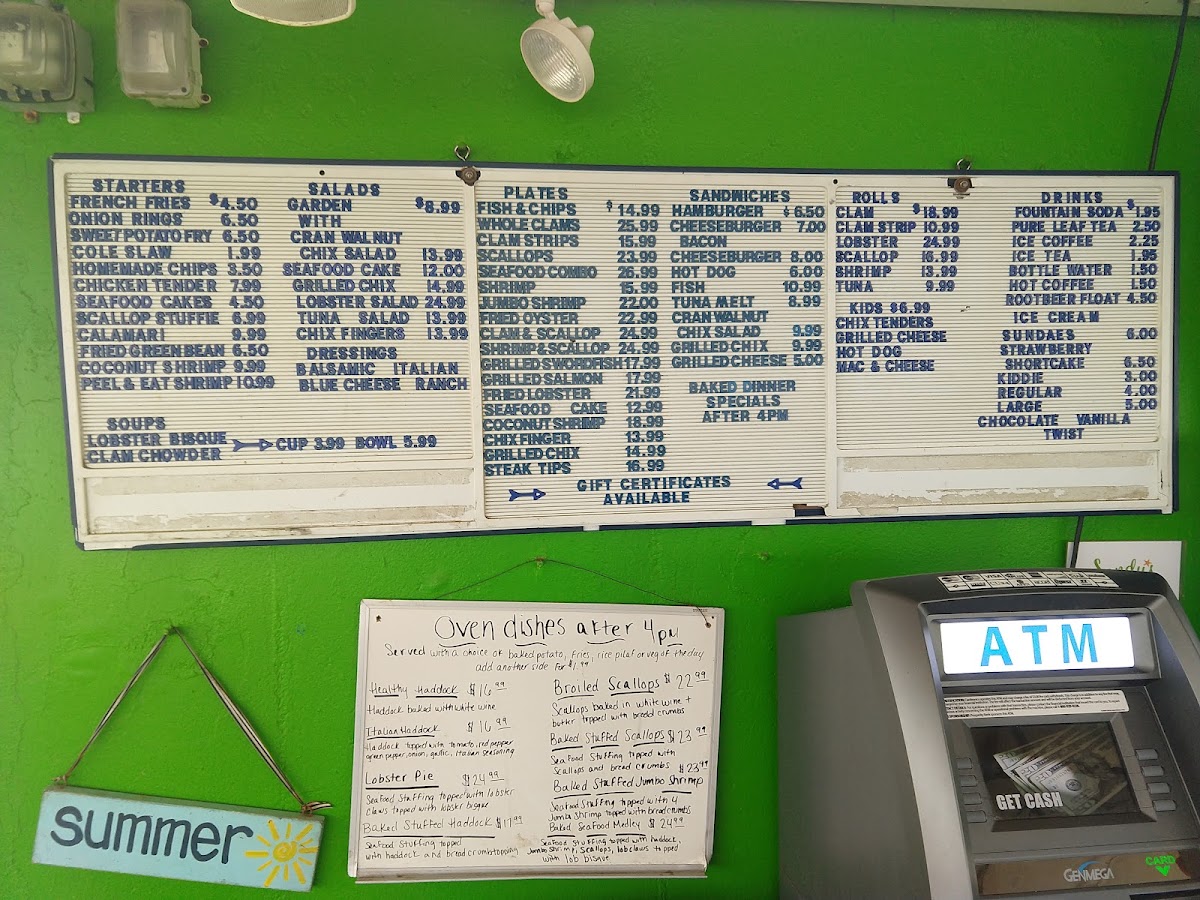 STARTERS
FRENCH FRIES $4.50
ONION RINGS 6.50
SWEET POTATO FRY 6.50
COLE SLAW 1.99
HOMEMADE CHIPS 3.50
CHICKEN TENDER 7.99
SEAFOOD CAKES 4.50
SCALLOP STUFFIE 6.99
CALAMARI 9.99
FRIED GREEN BEAN 6.50
COCONUT SHRIMP 9.99
PEEL & EAT SHRIMP 10.99
SOUPS
LOBSTER BISQUE
CLAM CHOWDER
CUP 3.99 BOWL 5.99
SALADS
GARDEN $8.99
WITH
CRAN WALNUT
CHIX SALAD 13.99
SEAFOOD CAKE 12.00
GRILLED CHIX 14.99
LOBSTER SALAD 24.99
TUNA SALAD 13.99
CHIX FINGERS 13.99
DRESSINGS
BALSAMIC ITALIAN
BLUE CHEESE RANCH
PLATES
FISH & CHIPS $14.99
WHOLE CLAMS 25.99
CLAM STRIPS 15.99
SCALLOPS 23.99
SEAFOOD COMBO 26.99
SHRIMP 15.99
JUMBO SHRIMP 22.00
FRIED OYSTER 22.99
CLAM & SCALLOP 24.99
SHRIMP & SCALLOP 24.99
GRILLED SWORDFISH 17.99
GRILLED SALMON 17.99
FRIED LOBSTER 21.99
SEAFOOD CAKE 12.99
COCONUT SHRIMP 18.99
CHIX FINGER 13.99
GRILLED CHIX 14.99
STEAK TIPS 16.99
SANDWICHES
HAMBURGER $6.50
CHEESEBURGER 7.00
BACON
CHEESEBURGER 8.00
HOT DOG 6.00
FISH 10.99
TUNA MELT 8.99
CRAN WALNUT
CHIX SALAD 9.99
GRILLED CHIX 9.99
GRILLED CHEESE 5.00
BAKED DINNER
SPECIALS
AFTER 4PM
GIFT CERTIFICATES
AVAILABLE
ROLLS
CLAM $18.99
CLAM STRIP 10.99
LOBSTER 24.99
SCALLOP 16.99
SHRIMP 13.99
TUNA 9.99
KIDS $6.99
CHIX TENDERS
GRILLED CHEESE
HOT DOG
MAC & CHEESE
DRINKS
FOUNTAIN SODA $1.95
PURE LEAF TEA 2.50
ICE COFFEE 2.25
ICE TEA 1.95
BOTTLE WATER 1.50
HOT COFFEE 1.50
ROOTBEER FLOAT 4.50
ICE CREAM
SUNDAES 6.00
STRAWBERRY
SHORTCAKE 6.50
KIDDIE 3.00
REGULAR 4.00
LARGE 5.00
CHOCOLATE VANILLA
TWIST
Oven dishes after 4pm
Served with a choice of baked potato, fries, rice pilaf or veg of the day
add another side for $1.99
Healthy Haddock $16.99
Haddock baked with white wine
Italian Haddock $16.99
Haddock topped with tomato, red pepper
green pepper, onion, garlic, Italian seasoning
Lobster Pie $24.99
Seafood Stuffing topped with lobster
claws topped with lobster bisque
Baked Stuffed Haddock $17.99
Seafood Stuffing topped
with haddock and bread crumb topping
Broiled Scallops $22.99
Scallops baked in white wine +
butter topped with bread crumbs
Baked Stuffed Scallops $23.99
Sea Food Stuffing topped with
Scallops and bread crumbs
$23.99
Baked Stuffed Jumbo Shrimp
Seafood Stuffing topped with 4
Jumbo Shrimp topped with bread crumbs
Baked Seafood Medley $24.99
Seafood Stuffing topped with haddock,
Jumbo Shrimp, Scallops, lob claws topped
with lob bisque
summer
ATM
GET CASH
GENMEGA
CARD